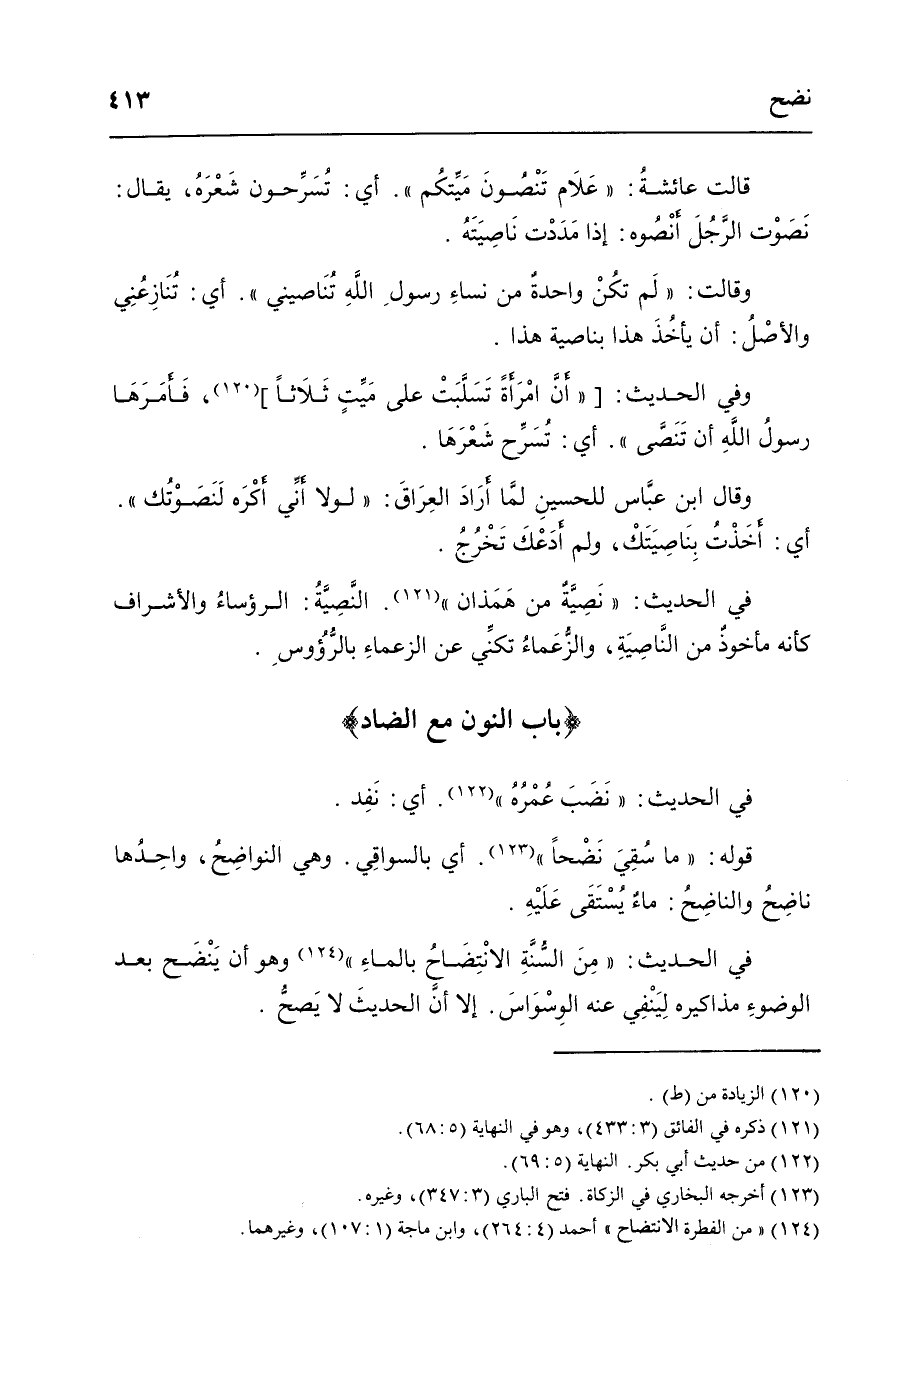 نضح ٤١٣
قالت عائشةُ: « عَلَام تَنْصُـونَ مَيِّتكُم ». أي: تُسَرِّحـون شَعْرَهُ، يقـال:
نَصَوْت الرَّجُلَ أَنْصُوه: إذا مَدَدْت نَاصِيَتَهُ .
وقالت: « لَم تكُنْ واحدةٌ من نساءِ رسولِ اللَّهِ تُنَاصيني ». أي: تُنَازِعُنِي
والأصْلُ: أن يأخُذَ هذا بناصية هذا .
وفي الحـديث: [ « أَنَّ امْرَأَةً تَسَلَّبَتْ على مَيِّتٍ ثَـلَاثـاً ](١٢٠)، فَـأَمَـرَهَـا
رسولُ اللَّهِ أن تَنَصَّى ». أي: تُسَرِّح شَعْرَهَا .
وقال ابن عبَّاس للحسينِ لمَّا أَرَادَ العِرَاقَ: « لـولا أَنِّي أَكْرَه لَنَصَـوْتُك ».
أي: أَخَذْتُ بِنَاصِيَتَكْ، ولم أَدَعْكَ تَخْرُجُ .
في الحديث: « نَصِيَّةٌ من هَمَذان »(١٢١). النَّصِيَّةُ: الـرؤساءُ والأشـراف
كأنه مأخوذٌ من النَّاصِيَةِ، والزُّعَماءُ تكنِّي عن الزعماءِ بالرُّؤُوسِ .
﴿باب النون مع الضاد﴾
في الحديث: « نَضَبَ عُمْرُهُ »(١٢٢). أي: نَفِد .
قوله: « ما سُقِيَ نَضْحاً »(١٢٣). أي بالسواقِي. وهي النواضِحُ، واحِـدُها
ناضِحُ والناضِحُ: ماءٌ يُسْتَقَى عَلَيْهِ .
في الحـديث: « مِنَ السُّنَّةِ الانْتِضَـاحُ بالمـاءِ »(١٢٤) وهو أن يَنْضَـح بعـد
الوضوءِ مذاكيره لِيَنْفِي عنه الوِسْوَاسَ. إلا أنَّ الحديثَ لا يَصحُّ .
(١٢٠) الزيادة من (ط) .
(١٢١) ذكره في الفائق (٣ :٤٣٣)، وهو في النهاية (٥ :٦٨).
(١٢٢) من حديث أبي بكر. النهاية (٥ :٦٩).
(١٢٣) أخرجه البخاري في الزكاة. فتح الباري (٣ :٣٤٧)، وغيره.
(١٢٤) « من الفطرة الانتضاح » أحمد (٤ :٢٦٤)، وابن ماجة (١ :١٠٧)، وغيرهما.